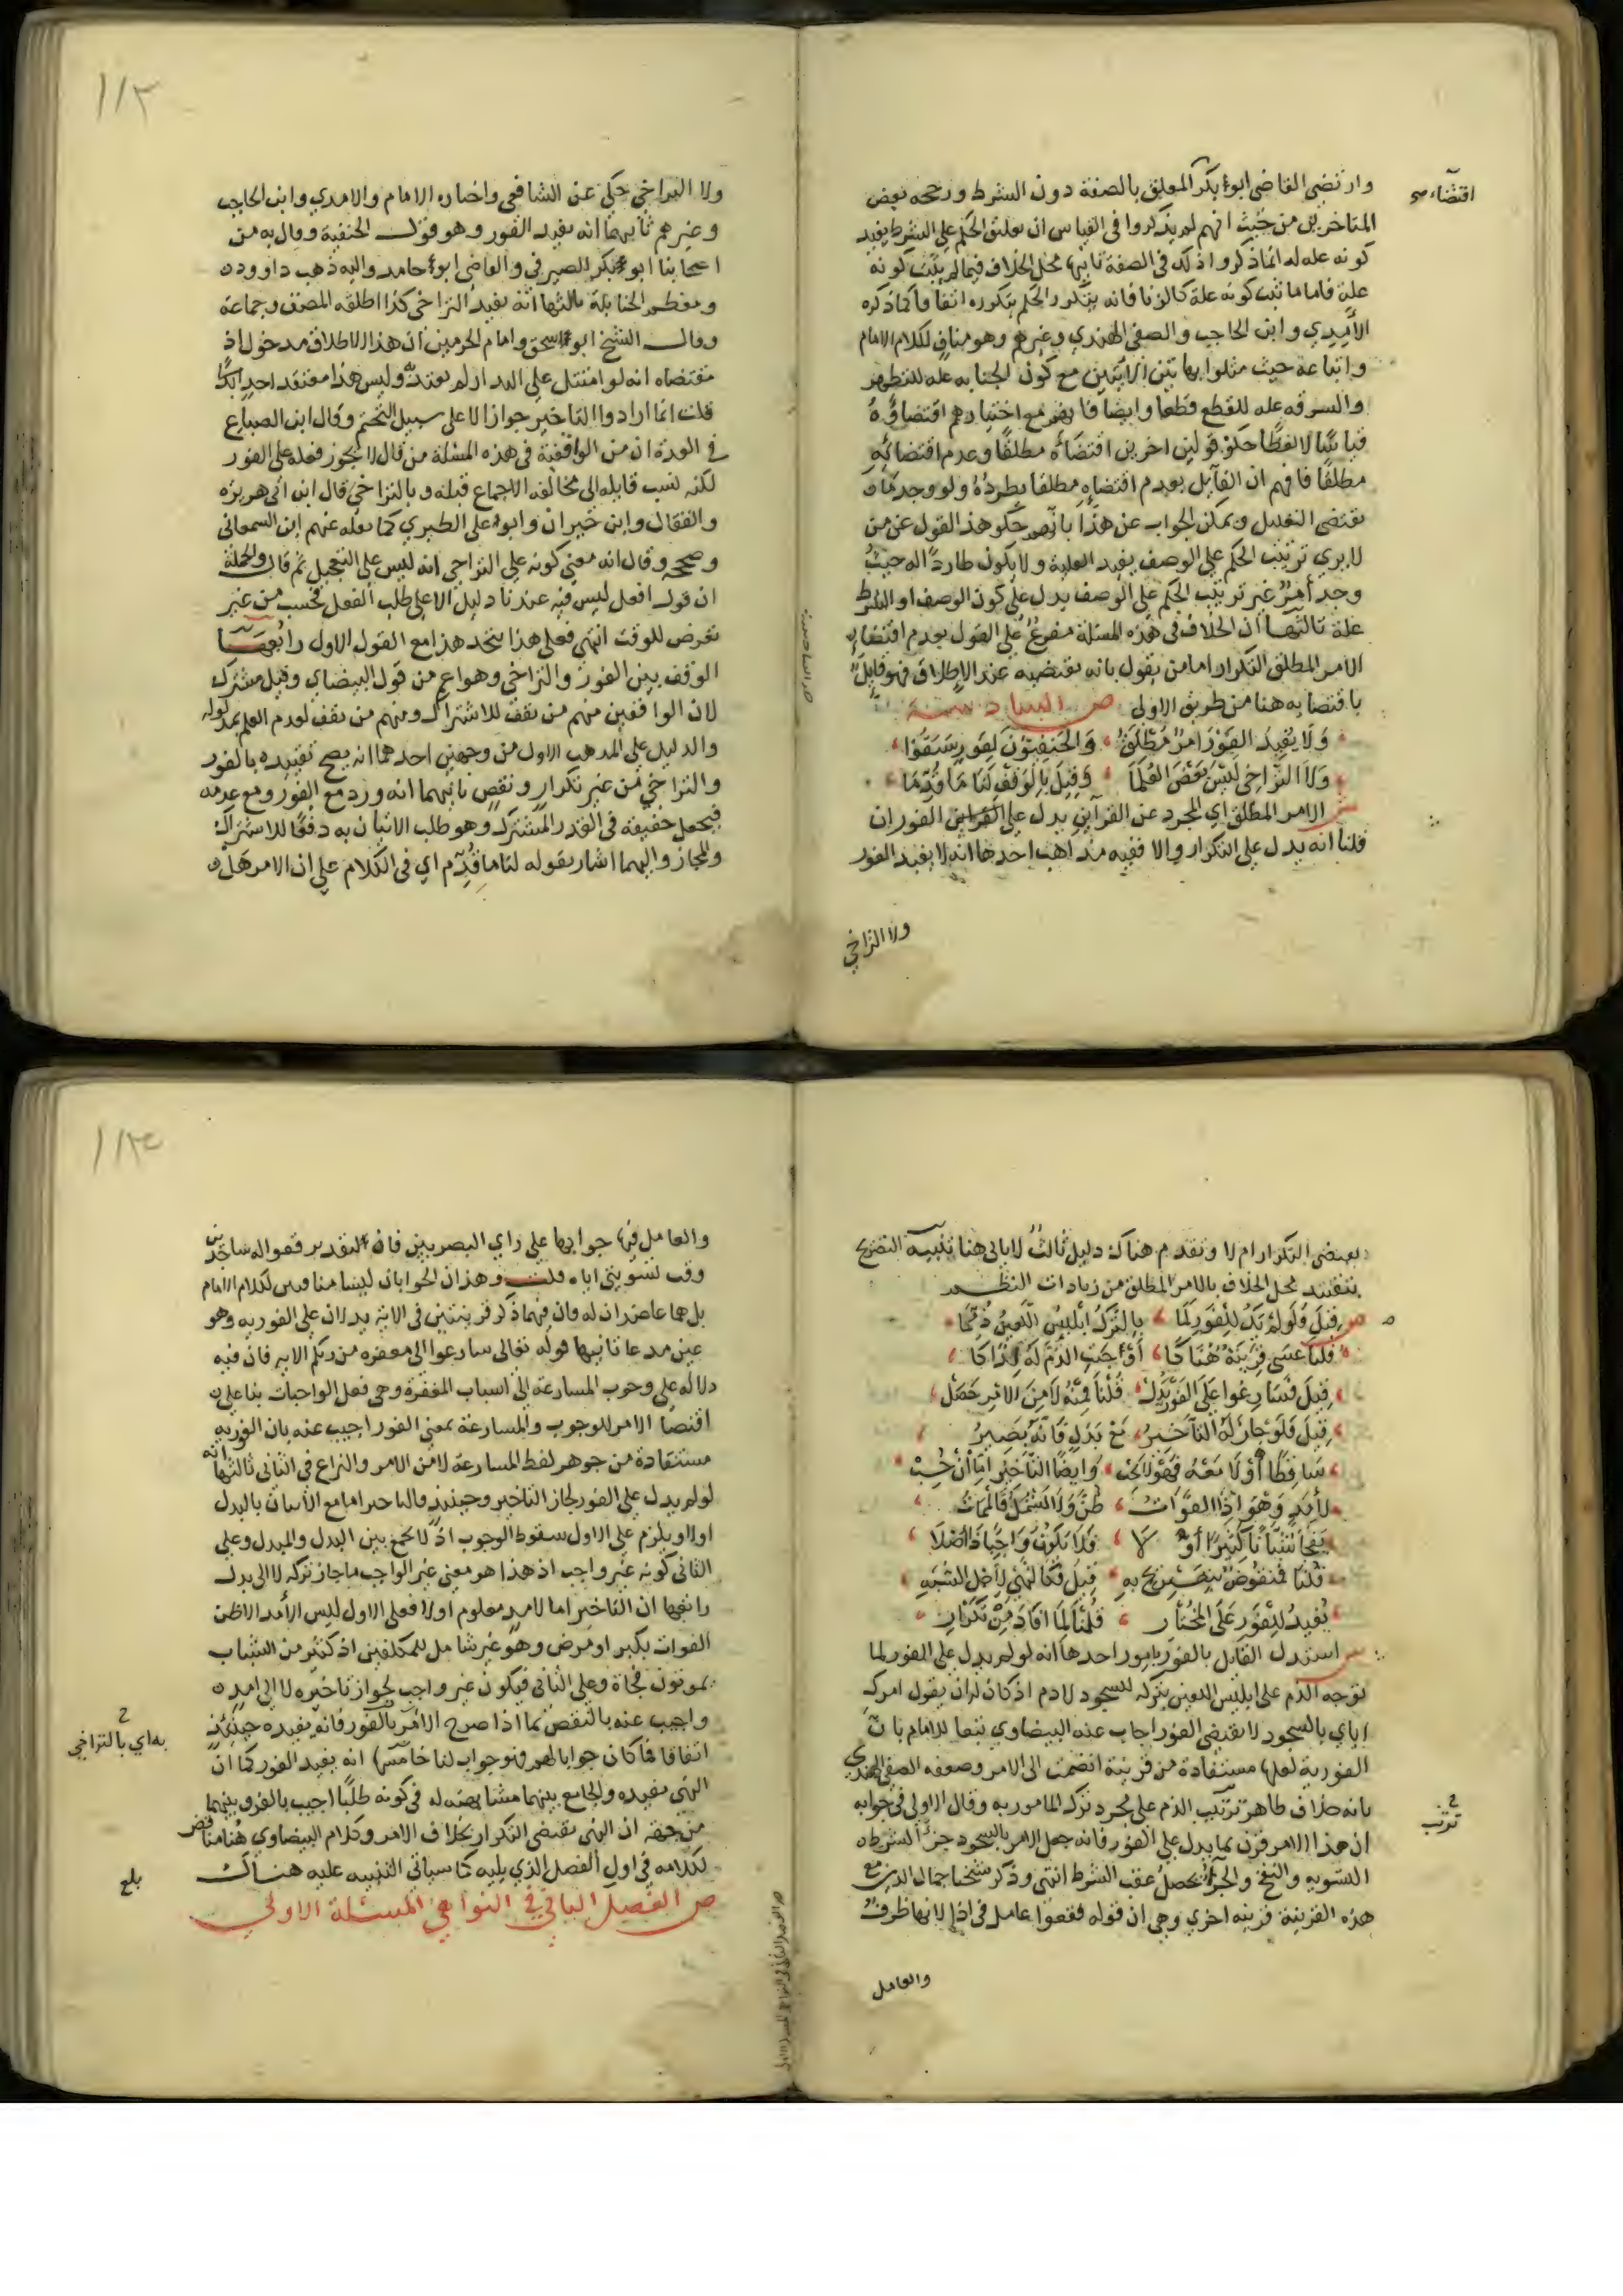 وارتضى القاضي ابو بكر المعلق بالصفة دون الشرط ورجحه بعض
اقتضاء
المتاخرين من حيث انهم لم يذكروا في القياس ان تعليق الحكم على الشرط يفيد
كونه علة له انما ذكروا ذلك في الصفة ثانيها محل الخلاف فيما لم يثبت كونه
علة فاما ما ثبت كونه علة كالزنا فانه يتكرر الحكم بتكرره اتفاقا كما ذكره
الآمدي وابن الحاجب والصفي الهندي وغيرهم وهو مناف لكلام الامام
واتباعه حيث مثلوا بهاتين الآيتين مع كون الجنابة علة للتطهر
والسرقة علة للقطع قطعا وايضا فا مع اختيارهم اقتضاؤه
قياسا لا لفظا حكوا قولين اخرين اقتضاؤه مطلقا وعدم اقتضائه
مطلقا فافهم ان القايل بعدم اقتضايه مطلقا يطرده ولو وجد ما
يقتضي التعليل ويمكن الجواب عن هذا بانهم حكوا هذا القول عن من
لا يرى ترتيب الحكم على الوصف يفيد العلية ولا يكون طاردا له حيث
وجد امر غير ترتيب الحكم على الوصف يدل على كون الوصف او الشرط
علة ثالثها ان الخلاف في هذه المسئلة مفرع على القول بعدم اقتضاء
الامر المطلق التكرار اما من يقول بانه يقتضيه عند الاطلاق فهو قايل
باقتضايه هنا من طريق الاولى ص السادسة
ولا يفيد الفور امر مطلق والحنفيون لفور سبقوا
ولا التراخي ليس بعض العلما وقيل بالوقف لنا ما قدما
ش الامر المطلق اي المجرد عن القرآين يدل على الفور ان
قلنا انه يدل على التكرار والا ففيه مذاهب احدها انه لا يفيد الفور
ولا التراخي
١١٣
ولا التراخي حكي عن الشافعي واختاره الامام والامدي وابن الحاجب
وغيرهم ثانيها انه يفيد الفور وهو قول الحنفية وقال به من
اصحابنا ابو بكر الصيرفي والقاضي ابو حامد واليه ذهب داوود
ومعظم الحنابلة ثالثها انه يفيد التراخي كذا اطلقه المصنف وجماعة
وقال الشيخ ابو اسحق وامام الحرمين ان هذا الاطلاق مدخول اذ
مقتضاه انه لو امتثل على البدار لم يعتد به وليس هذا معتقد احد
قلت انما ارادوا التاخير جوازا لا على سبيل التحتم وقال ابن الصباغ
في العدة ان من الواقفية في هذه المسئلة من قال لا يجوز فعله على الفور
لكنه نسب قايله الى مخالفة الاجماع قبله وبالتراخي قال ابن ابي هريرة
والقفال وابن خيران وابو علي الطبري كما نقله عنهم ابن السمعاني
وصححه وقال انه معنى كونه على التراخي انه ليس على التعجيل ثم قال والجملة
ان قوله افعل ليس فيه عندنا دليل الا على طلب الفعل فحسب من غير
تعرض للوقت انتهى فعلى هذا يتحد هذا مع القول الاول رابعها
الوقف بين الفور والتراخي وهو اعم من قول البيضاوي وقيل مشترك
لان الواقفين منهم من يقف للاشتراك ومنهم من يقف لعدم العلم بمدلوله
والدليل على المذهب الاول من وجهين احدهما انه يصح تقييده بالفور
والتراخي من غير تكرار ونقض ثانيهما انه ورد مع الفور ومع عدمه
فيجعل حقيقة في القدر المشترك وهو طلب الاتيان به دفعا للاشتراك
والمجاز واليهما اشار بقوله لنا ما قدم اي في الكلام على ان الامر هل
يقتضي التكرار ام لا وتقدم هناك دليل ثالث لا ياتي هنا تنبيه التصريح
بتقييد محل الخلاف بالامر المطلق من زيادات النظم
ص قيل فلو لم يك للفور لما بالترك ابليس اللعين ذمما
قلنا عسى قرينة هناكا اوجبت الذم له لذاكا
قيل فسارعوا على الفور يدل قلنا فمنه لا من الامر حصل
قيل فلو جاز له التاخير مع بدل فانه يصير
ساقطا او لا معه فهو لا يجب وايضا التاخير اما ان يجب
لأمد وهو اذا الفوات ظن ولا يشمل فالممات
يفجا شبانا كثيرا او لا فلا يكون واجبا ذا اصلا
قلنا فمنقوض بتصريح به قيل فكالنهي لاجل الشبه
يفيد للفور على المختار قلنا لما افاد من تكرار
ش استدل القايل بالفور بامور احدها انه لو لم يدل على الفور لما
توجه الذم على ابليس اللعين بتركه للسجود لادم اذ كان له ان يقول امرك
اياي بالسجود لا يقتضي الفور اجاب عنه البيضاوي تبعا للامام بان
الفورية لعلها مستفادة من قرينة انضمت الى الامر وضعفه الصفي الهندي
بانه خلاف ظاهر ترتيب الذم على مجرد ترك المامور به وقال الاولى في جوابه
ترتب
ان هذا الامر قرن بما يدل على الفور فانه جعل الامر بالسجود جزآ لشرط
التسوية والنفخ والجزآ يحصل عقب الشرط انتهى وذكر شيخنا جمال الدين مع
هذه القرينة قرينة اخرى وهي ان قوله فقعوا عامل في اذا لانها ظرف
والعامل
١١٤
والعامل فيها جوابها على راي البصريين فان التقدير فقعوا له ساجدين
وقت تسويتي اياه قلت وهذان الجوابان ليسا منافيين لكلام الامام
بل هما عاضدان له فان فيهما ذكر قرينتين في الاية يدلان على الفورية وهو
عين مدعانا ثانيها قوله تعالى سارعوا الى مغفرة من ربكم الاية فان فيه
دلالة على وجوب المسارعة الى اسباب المغفرة وهي فعل الواجبات بنا على
اقتضا الامر للوجوب والمسارعة بمعنى الفور اجيب عنه بان الفورية
مستفادة من جوهر لفظ المسارعة لا من الامر والنزاع في الثاني ثالثها انه
لو لم يدل على الفور لجاز التاخير وحينئذ فالتاخير اما مع الاتيان بالبدل
اولا ويلزم على الاول سقوط الوجوب اذ لا يجمع بين البدل والمبدل وعلى
الثاني كونه غير واجب اذ هذا هو معنى غير الواجب ما جاز تركه لا الى بدل
رابعها ان التاخير اما لامد معلوم اولا فعلى الاول ليس الأمد الا ظن
الفوات بكبر او مرض وهو غير شامل للمكلفين اذ كثير من الشباب
يموتون فجاة وعلى الثاني فيكون غير واجب لجواز تاخيره لا الى امد
واجيب عنه بالنقض بما اذا صرح الامر بالفور فانه يفيده حينئذ
به اي بالتراخي
اتفاقا فما كان جوابا لهم فهو جواب لنا خامسها انه يفيد الفور كما ان
النهي يفيده والجامع بينهما مشابهته له في كونه طلبا اجيب بالفرق بينهما
من جهة ان النهي يقتضي التكرار بخلاف الامر وكلام البيضاوي هنا مناقض
لكلامه في اول الفصل الذي يليه كما سياتي التنبيه عليه هناك
بلغ
ص الفصل الثاني في النواهي المسئلة الاولى